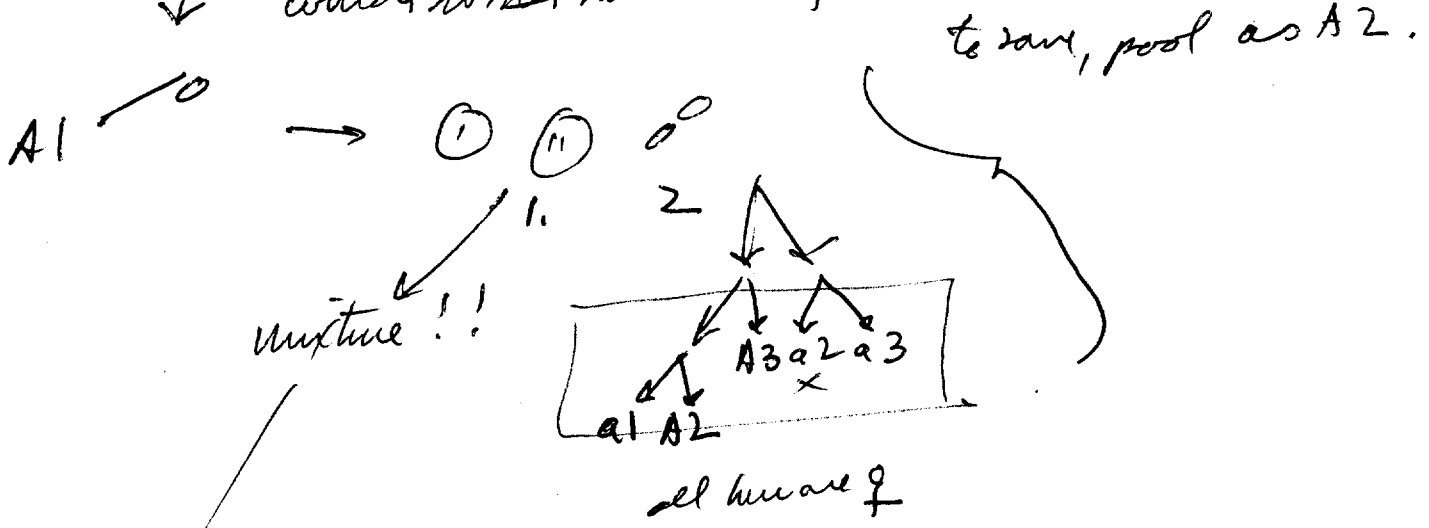 to save, pool as A2.
A1
1. 2
mixture!!
A3 a2 a3
x
a1 A2
all here are ♀